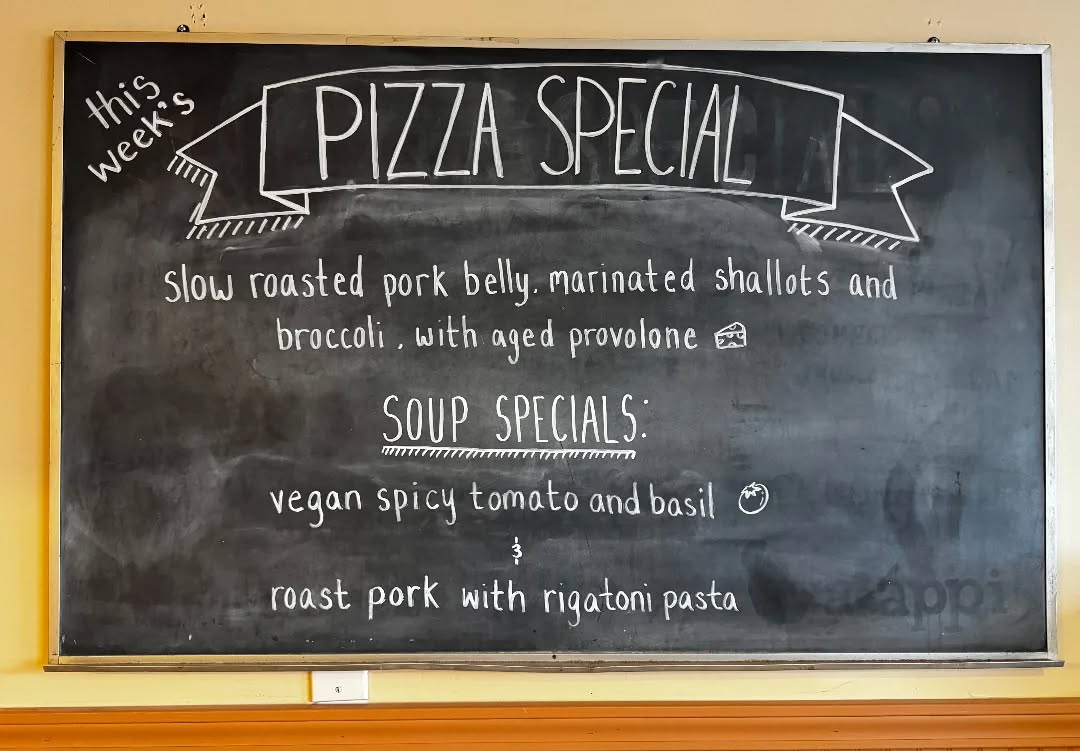 this
week's
PIZZA SPECIAL
slow roasted pork belly. marinated shallots and
broccoli, with aged provolone
SOUP SPECIALS:
vegan spicy tomato and basil
&
roast pork with rigatoni pasta